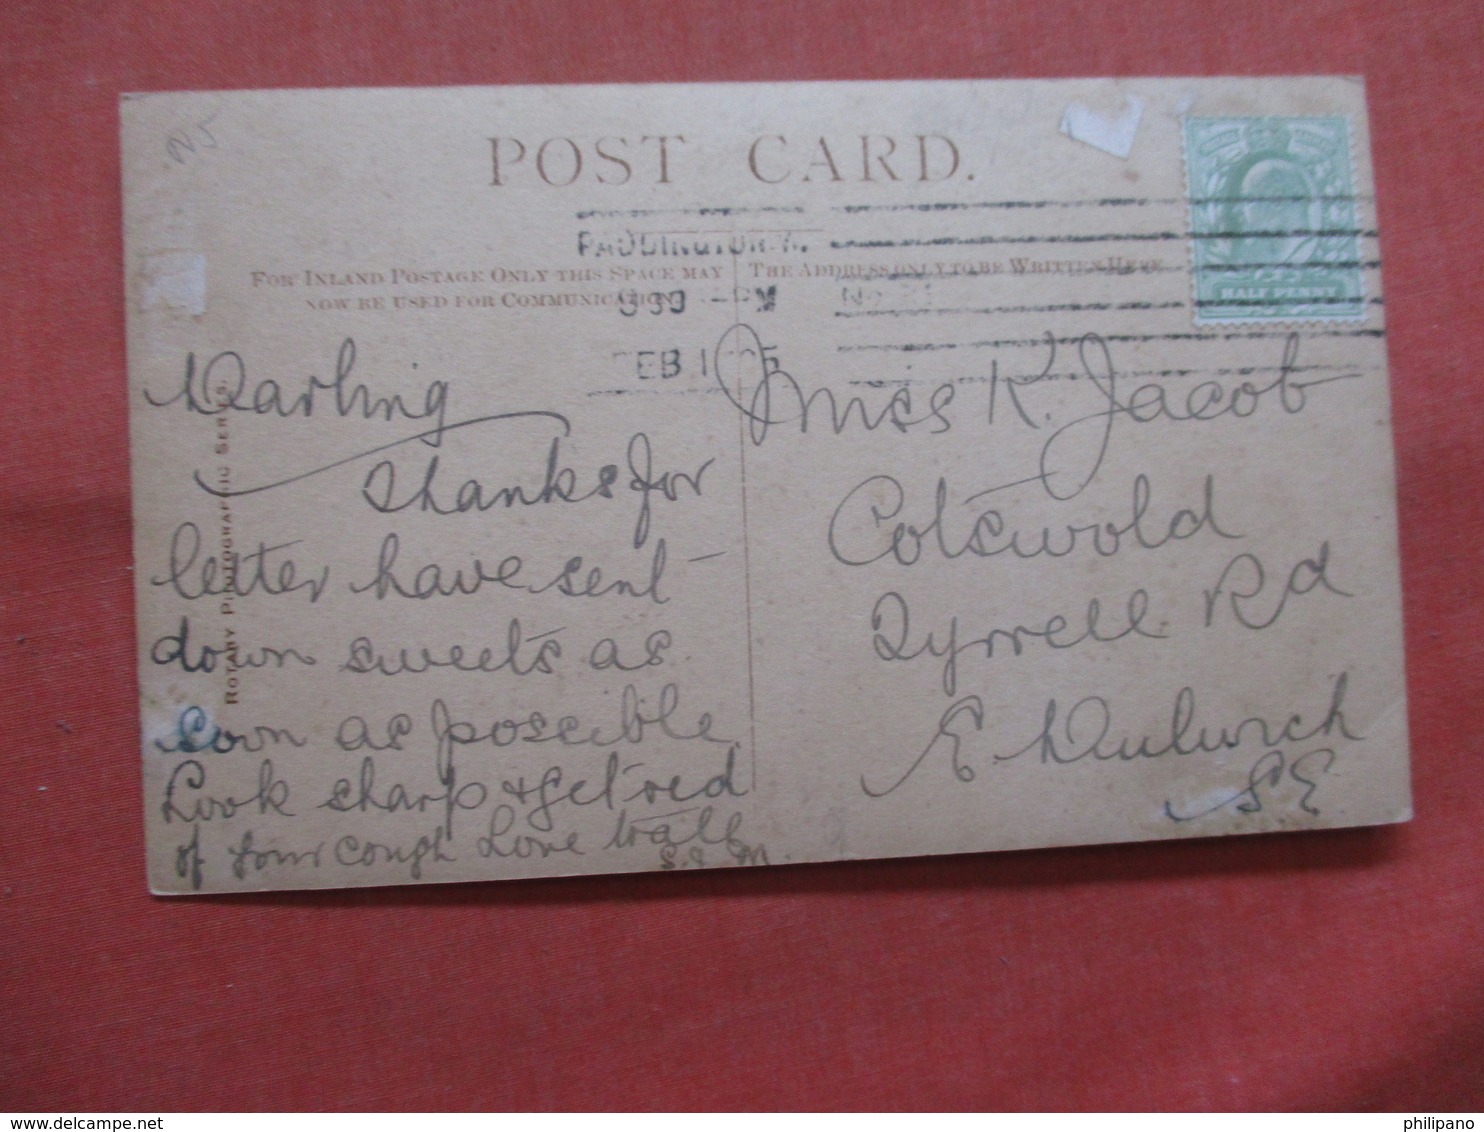 POST CARD.
PADDINGTON. W.
FOR INLAND POSTAGE ONLY THIS SPACE MAY
NOW BE USED FOR COMMUNICATION.
THE ADDRESS ONLY TO BE WRITTEN HERE
HALF PENNY
FEB 1
ROTARY PHOTOGRAPHIC SERIES.
Darling
thanks for
letter have sent
down sweets as
soon as possible
Look sharp & get red
of your cough Love to all
Miss K. Jacob
Cotswold
Tyrrell Rd
E Dulwich
S E
philipano